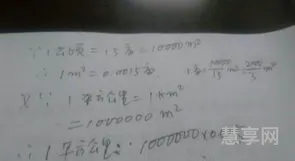 ∵ 1公顷 = 15亩 = 10000m²
∴ 1m² = 0.0015亩 1亩 = 10000/15 m² = 2000/3 m²
又∵ 1平方公里 = 1km²
= 1000000 m²
∴ 1平方公里 = 1000000 × 0.
慧享网